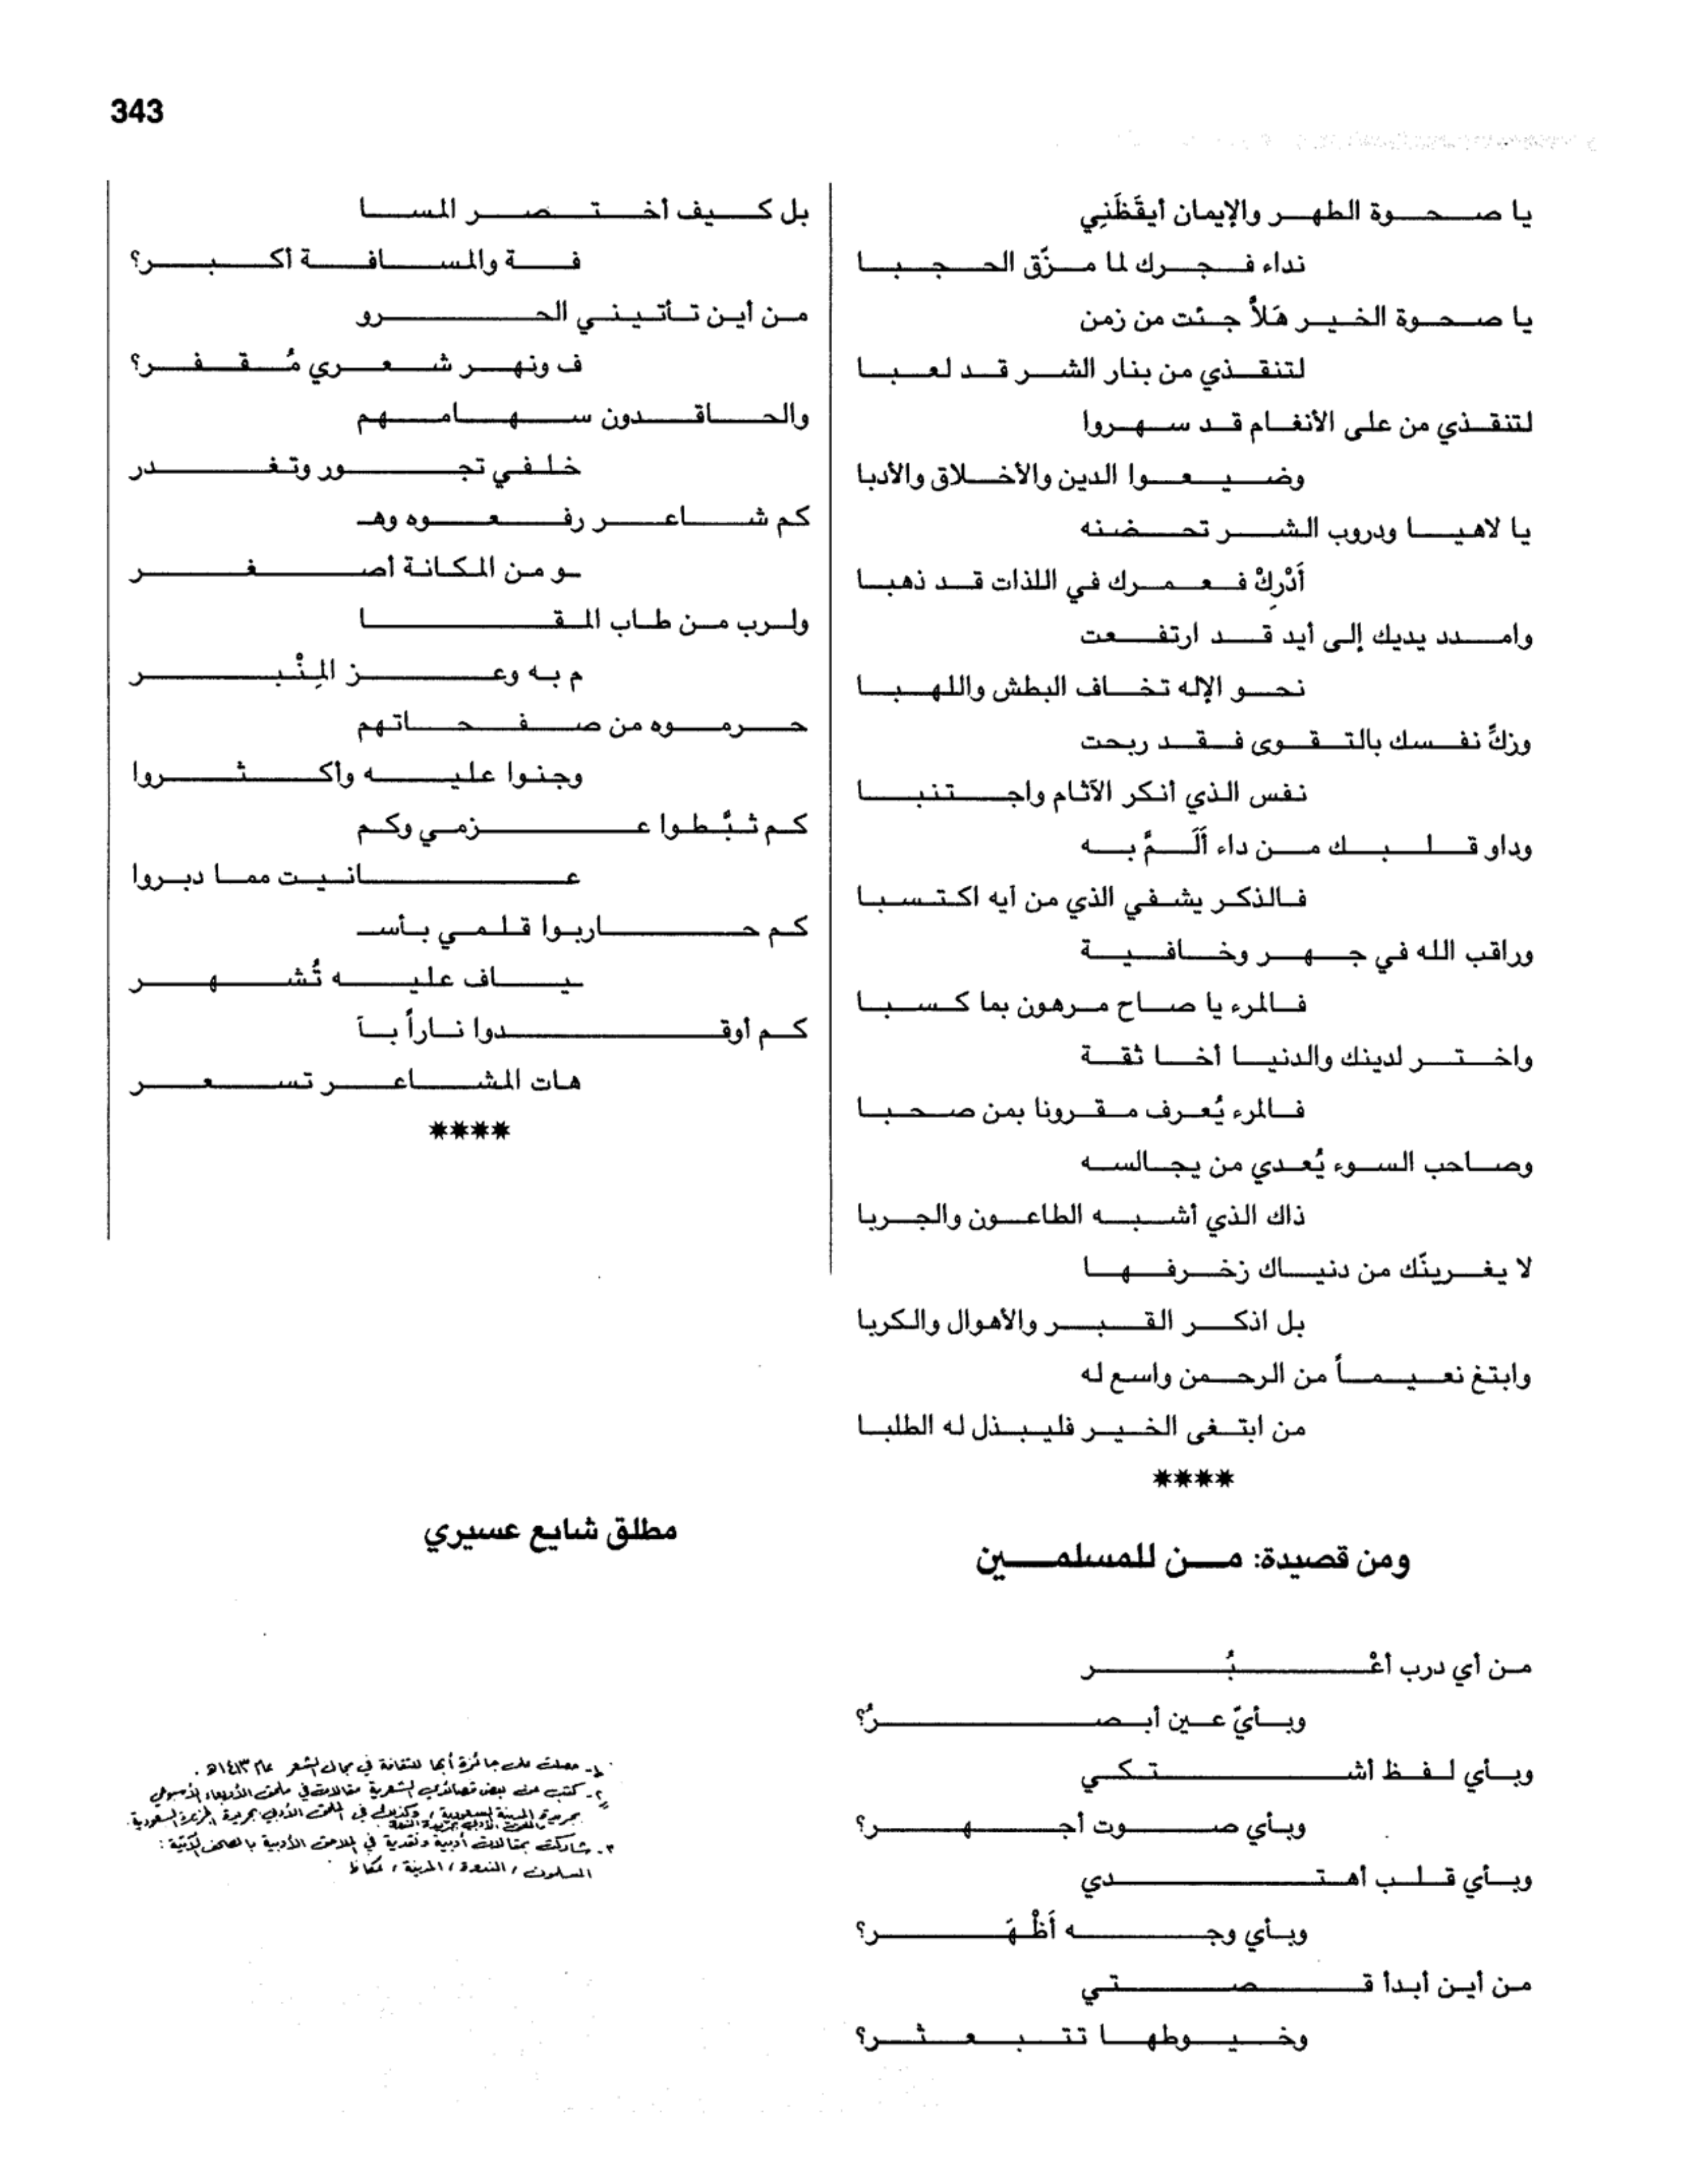 343
يا صحوة الطهر والإيمان أيقَظَنِي
نداء فجرك لما مزّق الحجبا
يا صحوة الخير هَلاَّ جئت من زمن
لتنقذي من بنار الشر قد لعبا
لتنقذي من على الأنغام قد سهروا
وضيعوا الدين والأخلاق والأدبا
يا لاهيا ودروب الشر تحضنه
أَدْرِكْ فعمرك في اللذات قد ذهبا
وامدد يديك إلى أيد قد ارتفعت
نحو الإله تخاف البطش واللهبا
وزكِّ نفسك بالتقوى فقد ربحت
نفس الذي أنكر الآثام واجتنبا
وداو قلبك من داء أَلَمَّ به
فالذكر يشفي الذي من آيه اكتسبا
وراقب الله في جهر وخافية
فالمرء يا صاح مرهون بما كسبا
واختر لدينك والدنيا أخا ثقة
فالمرء يُعرف مقرونا بمن صحبا
وصاحب السوء يُعدي من يجالسه
ذاك الذي أشبه الطاعون والجربا
لا يغرينّك من دنياك زخرفها
بل اذكر القبر والأهوال والكربا
وابتغ نعيماً من الرحمن واسع له
من ابتغى الخير فليبذل له الطلبا
****
ومن قصيدة: من للمسلمين
من أي درب أعْبُر
وبأيّ عين أبصرُ؟
وبأي لفظ أشتكي
وبأي صوت أجهر؟
وبأي قلب أهتدي
وبأي وجه أَظْهَر؟
من أين أبدأ قصتي
وخيوطها تتبعثر؟
بل كيف أختصر المسا
فة والمسافة أكبر؟
من أين تأتيني الحرو
ف ونهر شعري مُقفر؟
والحاقدون سهامهم
خلفي تجور وتغدر
كم شاعر رفعوه وهـ
ـو من المكانة أصغر
ولرب من طاب المقا
م به وعز المِنْبر
حرموه من صفحاتهم
وجنوا عليه وأكثروا
كم ثبَّطوا عزمي وكم
عانيت مما دبروا
كم حاربوا قلمي بأسـ
ـياف عليه تُشهر
كم أوقدوا ناراً بآ
هات المشاعر تسعر
****
مطلق شايع عسيري
١- حصلت على جائزة أبها للثقافة في مجال الشعر عام ١٤١٣هـ.
٢- كتب عن بعض قصائدي الشعرية مقالات في ملحق الأربعاء الأسبوعي
بجريدة المدينة السعودية، وكذلك في الملحق الأدبي بجريدة الجزيرة السعودية
٣- شاركت بمقالات أدبية ونقدية في الملاحق الأدبية بالصحف الآتية:
المسلمون، الندوة، المدينة، عكاظ